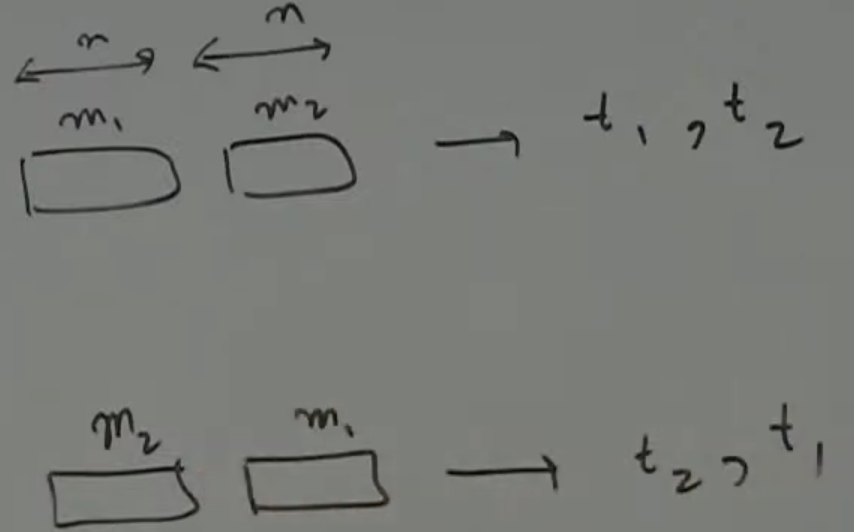 n n
m₁ m₂ → t₁, t₂
m₂ m₁ → t₂, t₁